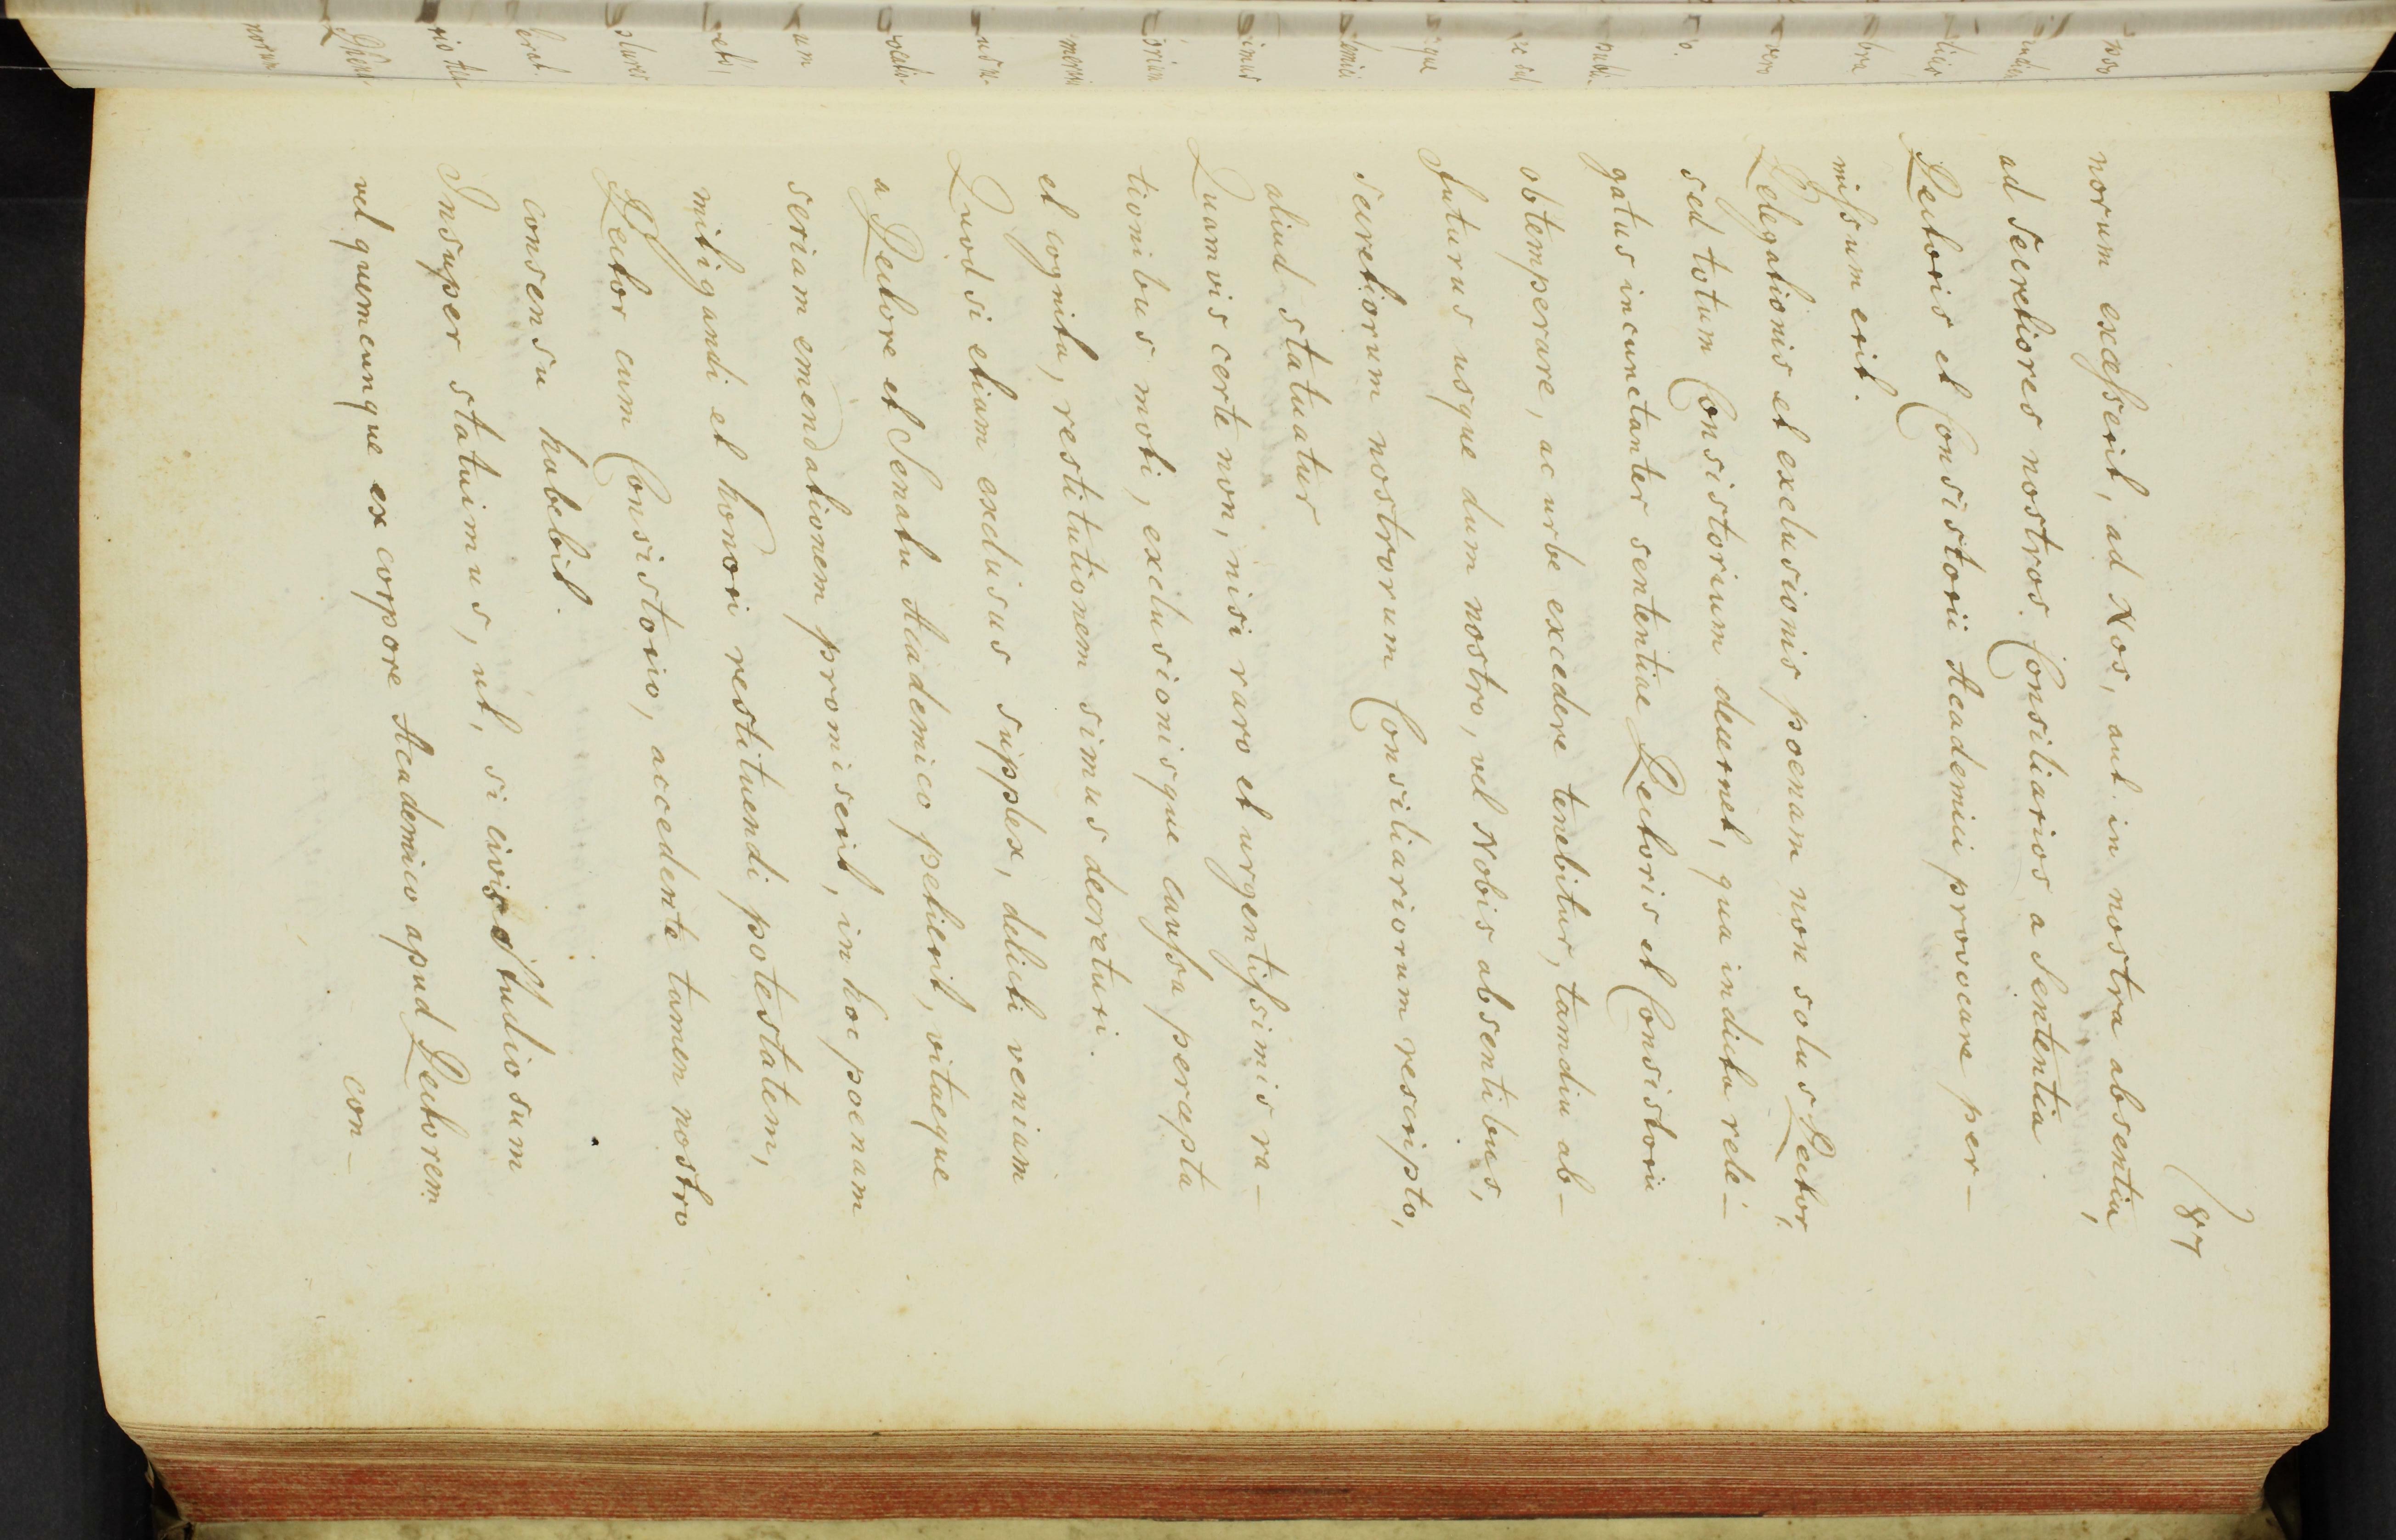 87
norum excesserit, ad Nos, aut in nostra absentia,
ad secretiores nostros Consiliarios a Sententia
Rectoris et Consistorii Academici provocare per-
missum erit.
Relegationis et exclusionis poenam non solus Rector,
sed totum Consistorium decernet, qua indicta rele-
gatus incunctanter sententiae Rectoris et Consistorii
obtemperare, ac urbe excedere tenebitur, tamdiu ab-
futurus usque dum nostro, vel Nobis absentibus,
secretiorum nostrorum Consiliariorum rescripto,
aliud statuatur
Quamvis certe non, nisi raro et urgentissimis ra-
tionibus moti, exclusionisque caussa percepta
et cognita, restitutionem simus decreturi.
Quod si etiam exclusus supplex, delicti veniam
a Rectore et Senatu Academico petierit, vitaeque
seriam emendationem promiserit, in hoc poenam
mitigandi et honori restituendi potestatem,
Rector cum Consistorio, accedente tamen nostro
consensu habebit.
Insuper statuimus, ut, si civis studiosum
vel quemcunque ex corpore Academico apud Rectorem
con-